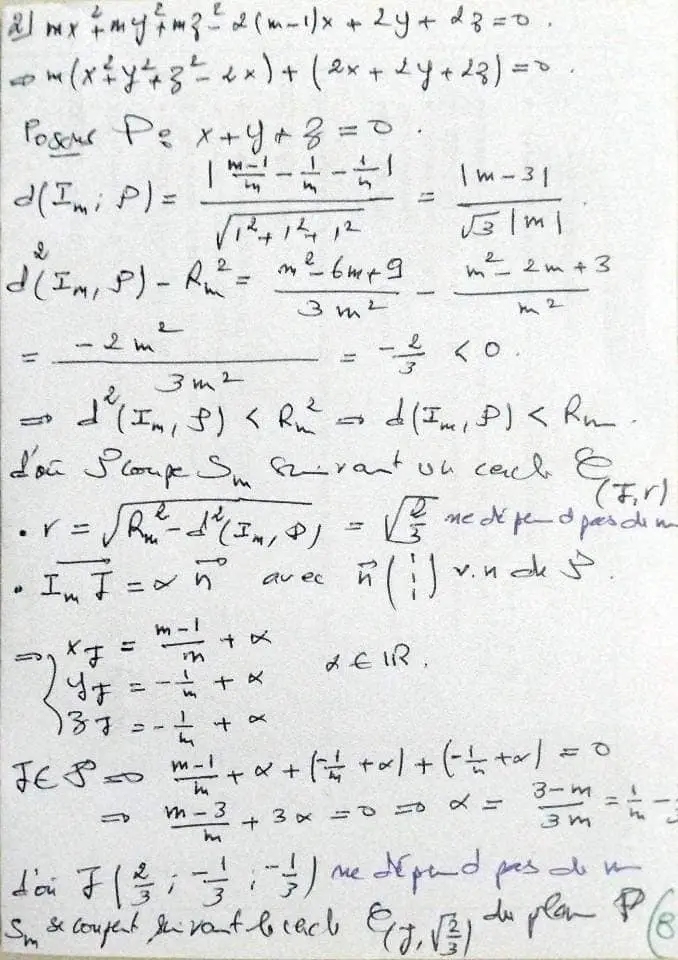 2) mx²+my²+mz²-2(m-1)x+2y+2z=0.
⇒ m(x²+y²+z²-2x)+(2x+2y+2z)=0.
Posons P: x+y+z=0.
d(Iₘ; P) = |(m-1)/m - 1/m - 1/m| / √(1²+1²+1²) = |m-3| / (√3 |m|)
d²(Iₘ, P) - Rₘ² = (m²-6m+9)/(3m²) - (m²-2m+3)/m²
= -2m²/(3m²) = -2/3 < 0.
⇒ d²(Iₘ, P) < Rₘ² ⇒ d(Iₘ, P) < Rₘ.
d'où P coupe Sₘ suivant un cercle C(J,r)
• r = √(Rₘ²-d²(Iₘ, P)) = √(2/3) ne dépend pas de m
• IₘJ⃗ = α n⃗ avec n⃗(1 1 1) v.n de P.
⇒ { x_J = (m-1)/m + α
y_J = -1/m + α α ∈ IR.
z_J = -1/m + α
J∈P ⇒ (m-1)/m + α + (-1/m + α) + (-1/m + α) = 0
⇒ (m-3)/m + 3α = 0 ⇒ α = (3-m)/(3m) = 1/m -
d'où J(2/3 ; -1/3 ; -1/3) ne dépend pas de m
Sₘ se coupent suivant le cercle C(J, √(2/3)) du plan P
8